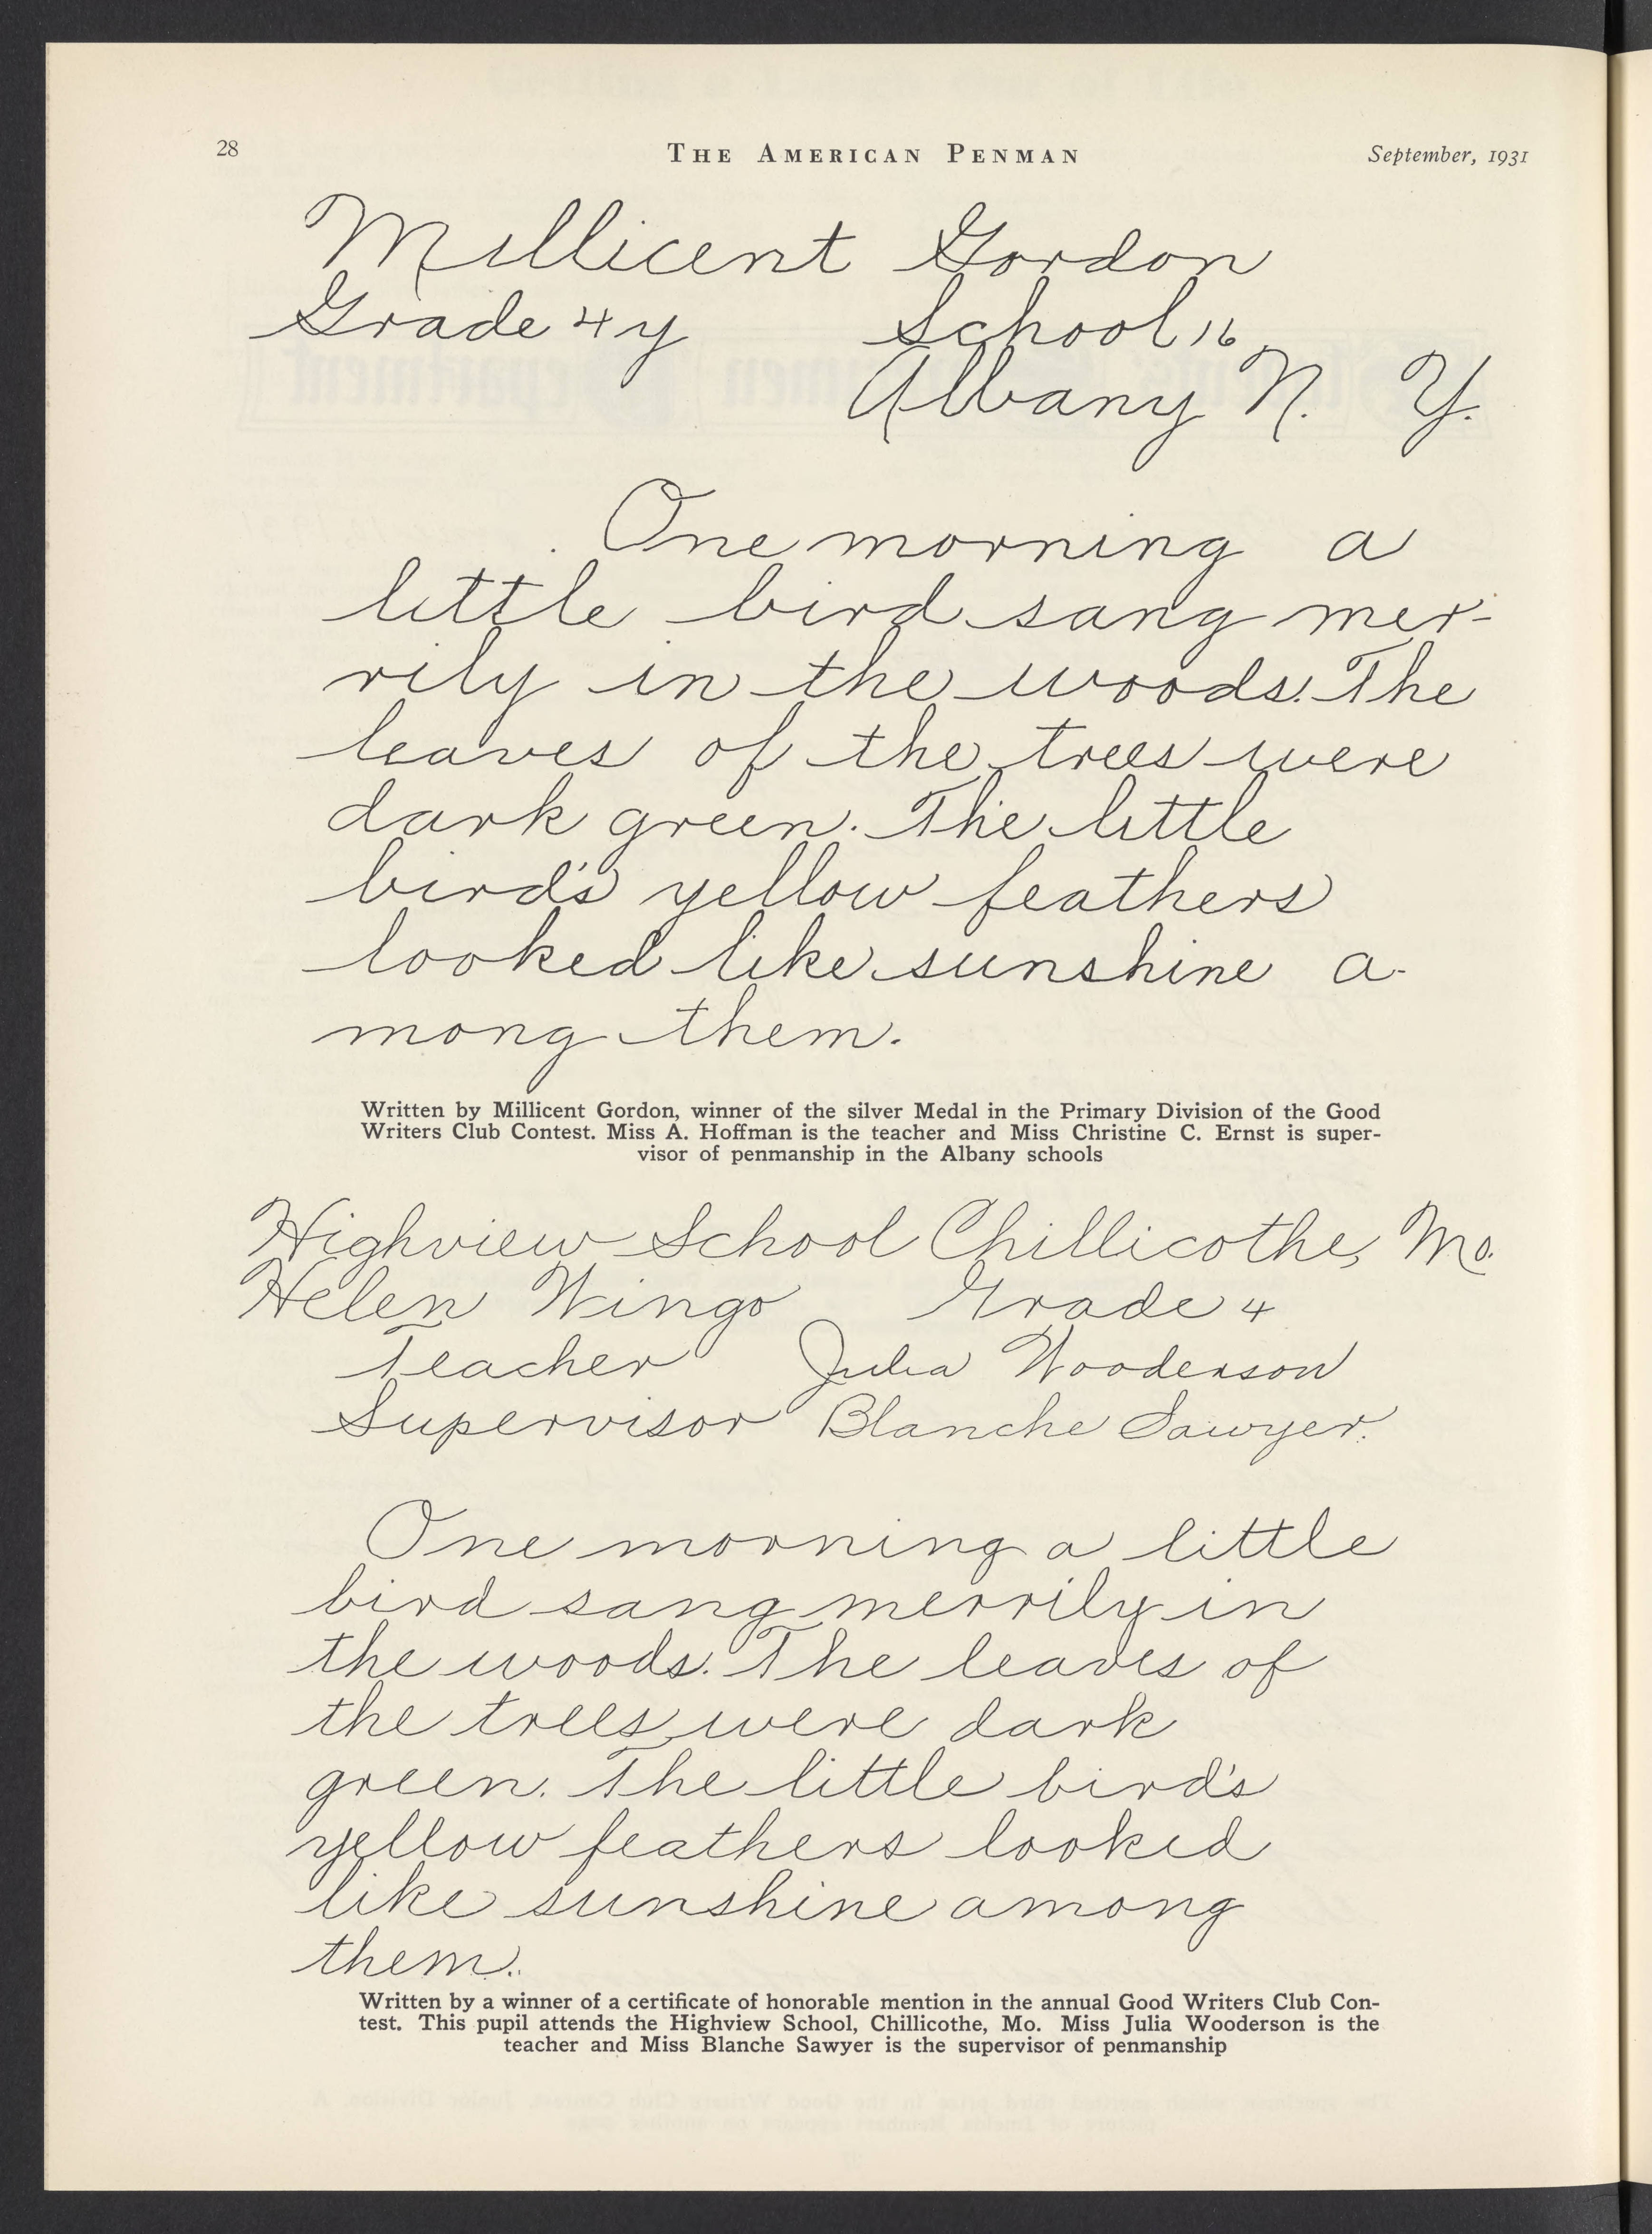 28 THE AMERICAN PENMAN September, 1931
Millicent Gordon
Grade 4y School 16
Albany N. Y.
One morning a
little bird sang mer-
rily in the woods. The
leaves of the trees were
dark green. The little
bird's yellow feathers
looked like sunshine a-
mong them.
Written by Millicent Gordon, winner of the silver Medal in the Primary Division of the Good
Writers Club Contest. Miss A. Hoffman is the teacher and Miss Christine C. Ernst is super-
visor of penmanship in the Albany schools
Highview School Chillicothe, Mo.
Helen Wingo Grade 4
Teacher Julia Wooderson
Supervisor Blanche Sawyer.
One morning a little
bird sang merrily in
the woods. The leaves of
the trees were dark
green. The little bird's
yellow feathers looked
like sunshine among
them.
Written by a winner of a certificate of honorable mention in the annual Good Writers Club Con-
test. This pupil attends the Highview School, Chillicothe, Mo. Miss Julia Wooderson is the
teacher and Miss Blanche Sawyer is the supervisor of penmanship